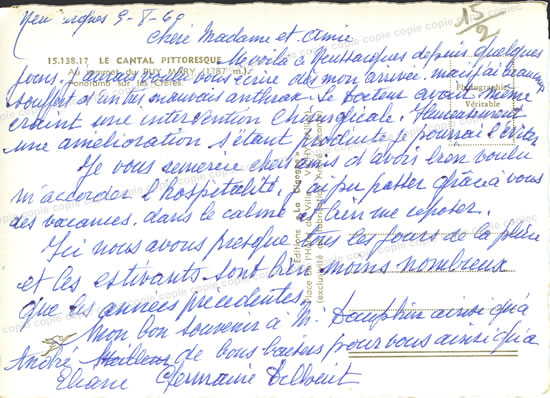 9-X-69
15/2
Chère Madame et Amie
15.138.17 LE CANTAL PITTORESQUE
Me voilà à Neussargues depuis quelques
Au sommet du PUY MARY (1787 m.)
Panorama sur les Crêtes
jours. J'aurais voulu vous écrire dès mon arrivée mais j'ai beaucoup
souffert d'un très mauvais anthrax. Le docteur avait même
craint une intervention chirurgicale. Heureusement
une amélioration s'étant produite je pourrai l'éviter
Je vous remercie chers amis d'avoir bien voulu
m'accorder l'hospitalité, j'ai pu passer grâce à vous
des vacances dans le calme et bien me reposer.
Ici nous avons presque tous les jours de la pluie
et les estivants sont bien moins nombreux
que les années précédentes.
Mon bon souvenir à M. Dauphin ainsi qu'à
André de bons baisers pour vous ainsi qu'à
Eliane Germaine
Photographie
Véritable
Editions
copie copie copie copie